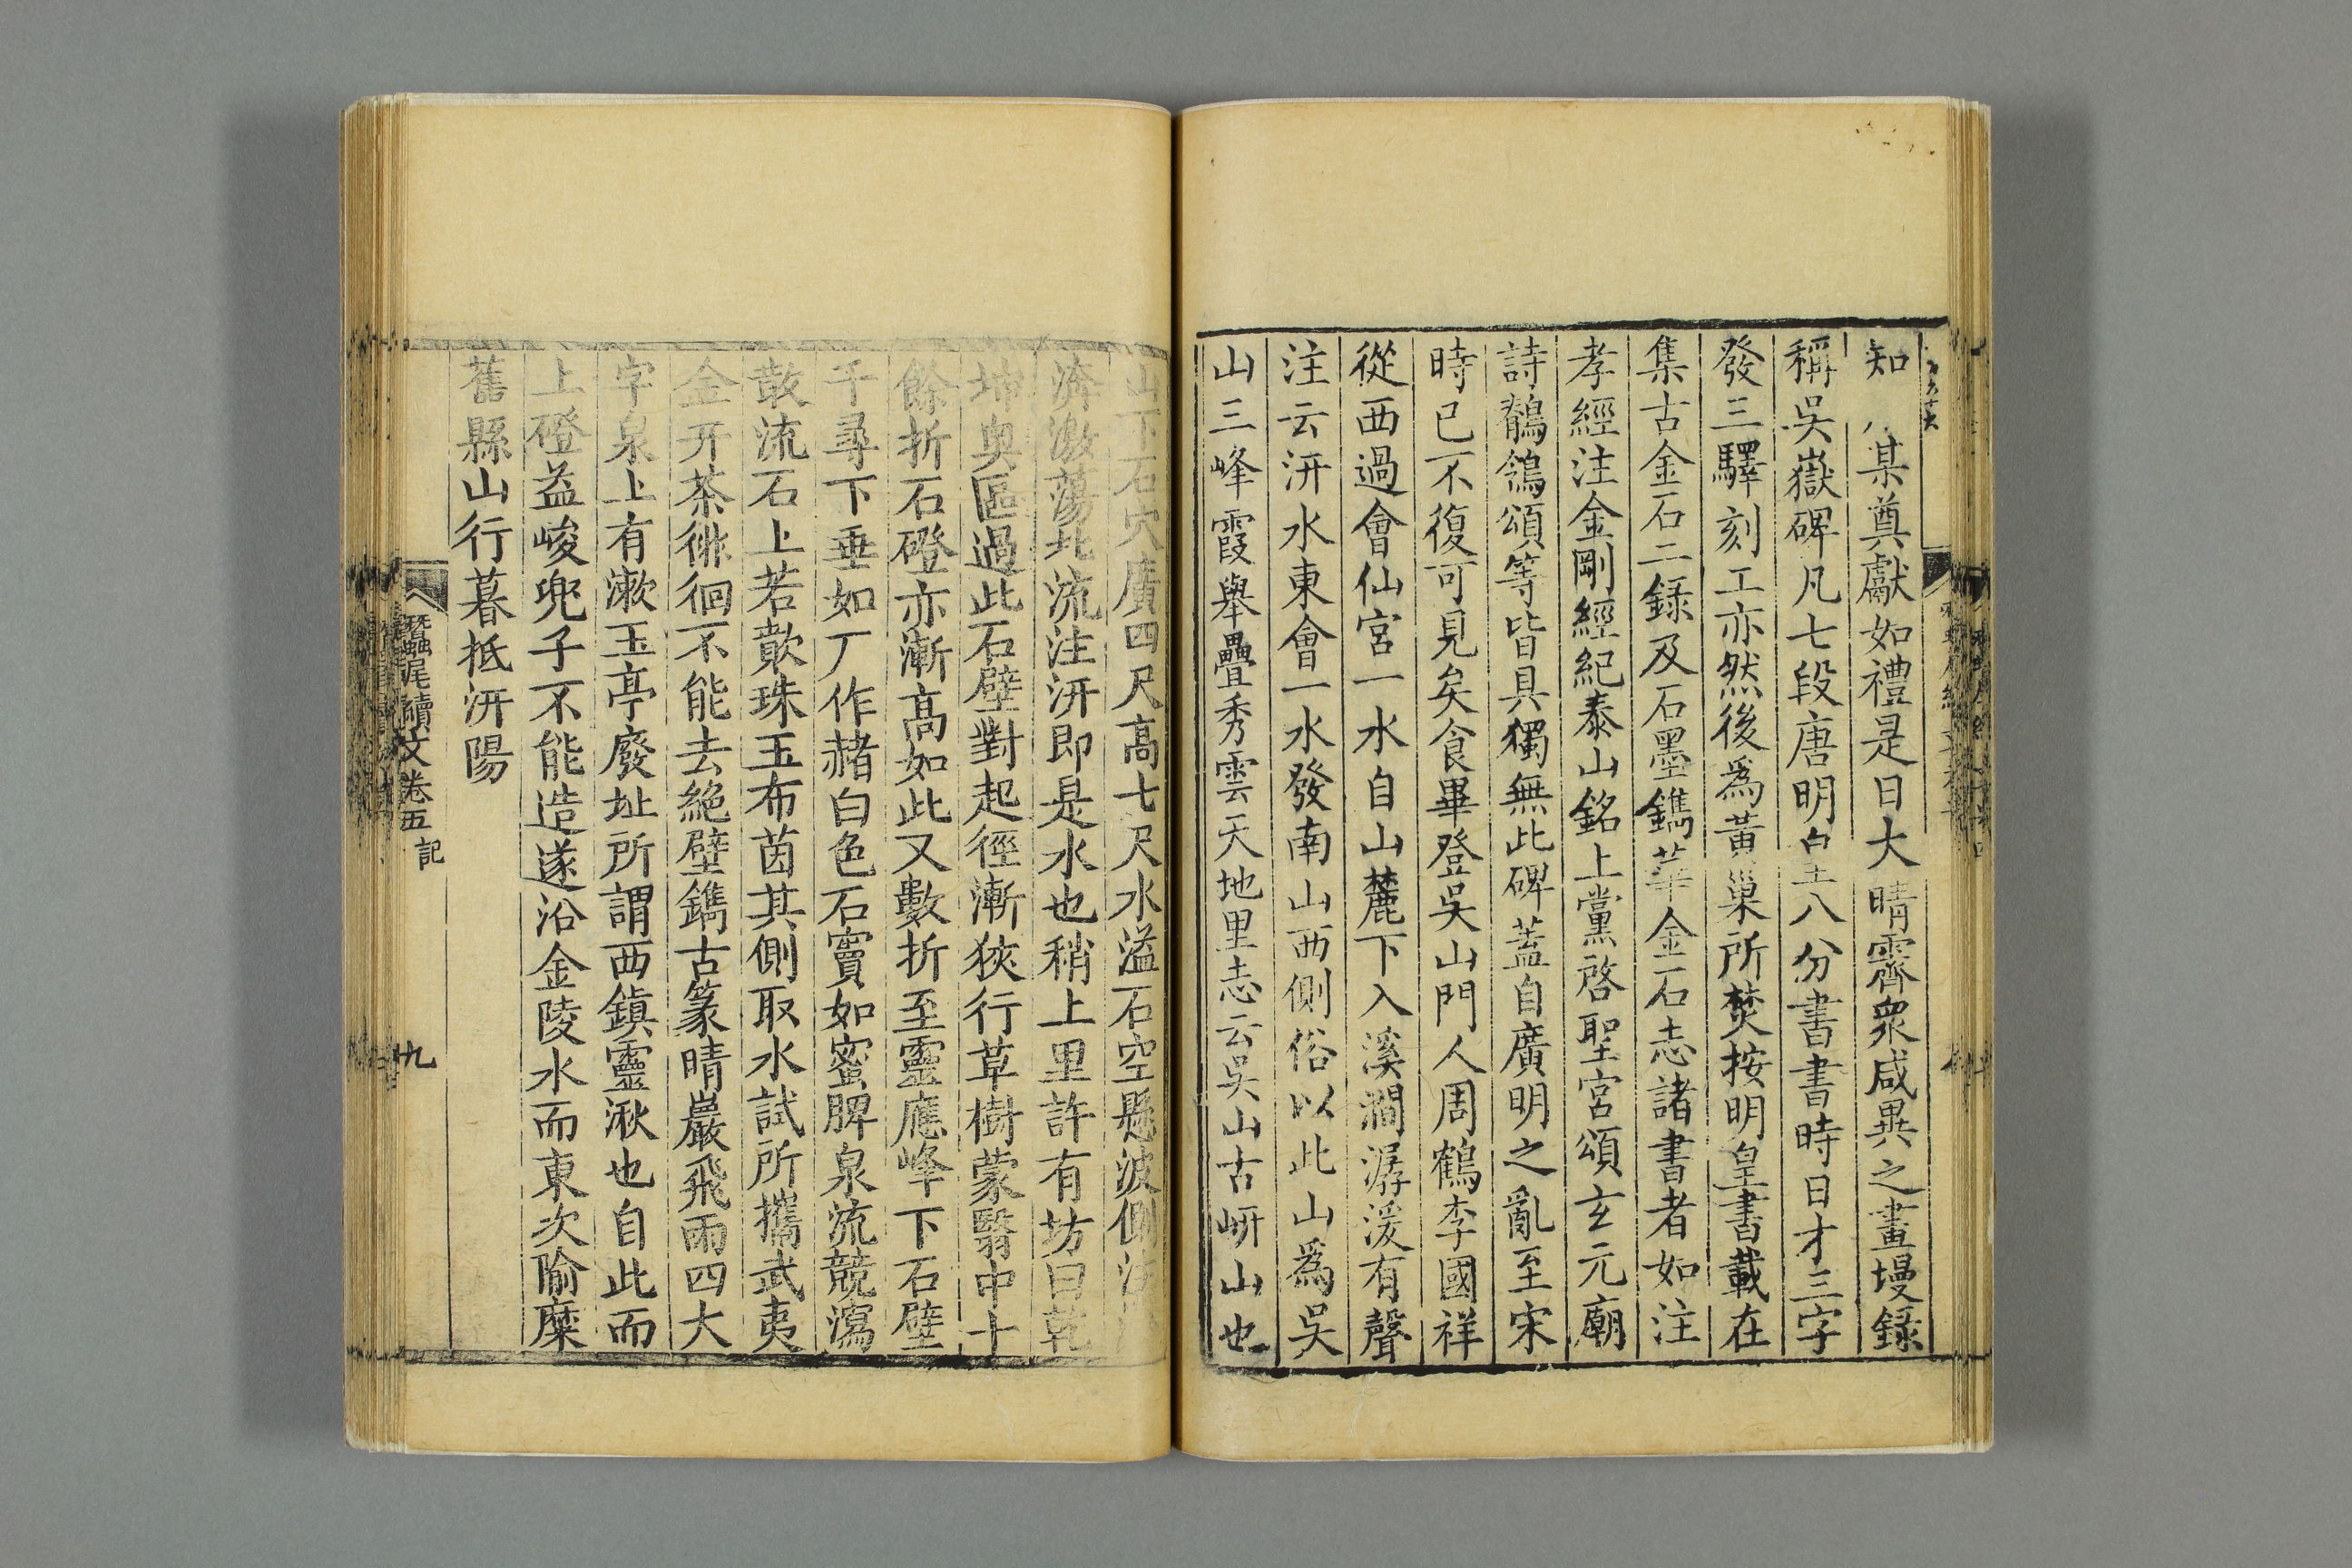 知 某奠獻如禮是日大晴霽衆咸異之畫墁錄
稱吳嶽碑凡七段唐明皇八分書書時日才三字
發三驛刻工亦然後爲黃巢所焚按明皇書載在
集古金石二録及石墨鐫華金石志諸書者如注
孝經注金剛經紀泰山銘上黨啓聖宮頌玄元廟
詩鶺鴒頌等皆具獨無此碑蓋自廣明之亂至宋
時已不復可見矣食畢登吳山門人周鶴李國祥
從西過會仙宮一水自山麓下入溪澗潺湲有聲
注云汧水東會一水發南山西側俗以此山爲吳
山三峰霞舉疊秀雲天地里志云吳山古岍山也
山下石穴廣四尺高七尺水溢石空懸波側注
濟激蕩北流注汧即是水也稍上里許有坊曰乾
坤奥區過此石壁對起徑漸狹行草樹蒙翳中十
餘折石磴亦漸高如此又數折至靈應峰下石壁
千尋下垂如厂作赭白色石竇如蜜脾泉流競瀉
㪚流石上若歕珠玉布茵其側取水試所攜武夷
金开茶徘徊不能去絶壁鐫古篆晴巖飛雨四大
字泉上有漱玉亭廢址所謂西鎮靈湫也自此而
上磴益峻兜子不能造遂沿金陵水而東次隃糜
舊縣山行暮抵汧陽
蠶尾續文卷五 記
九